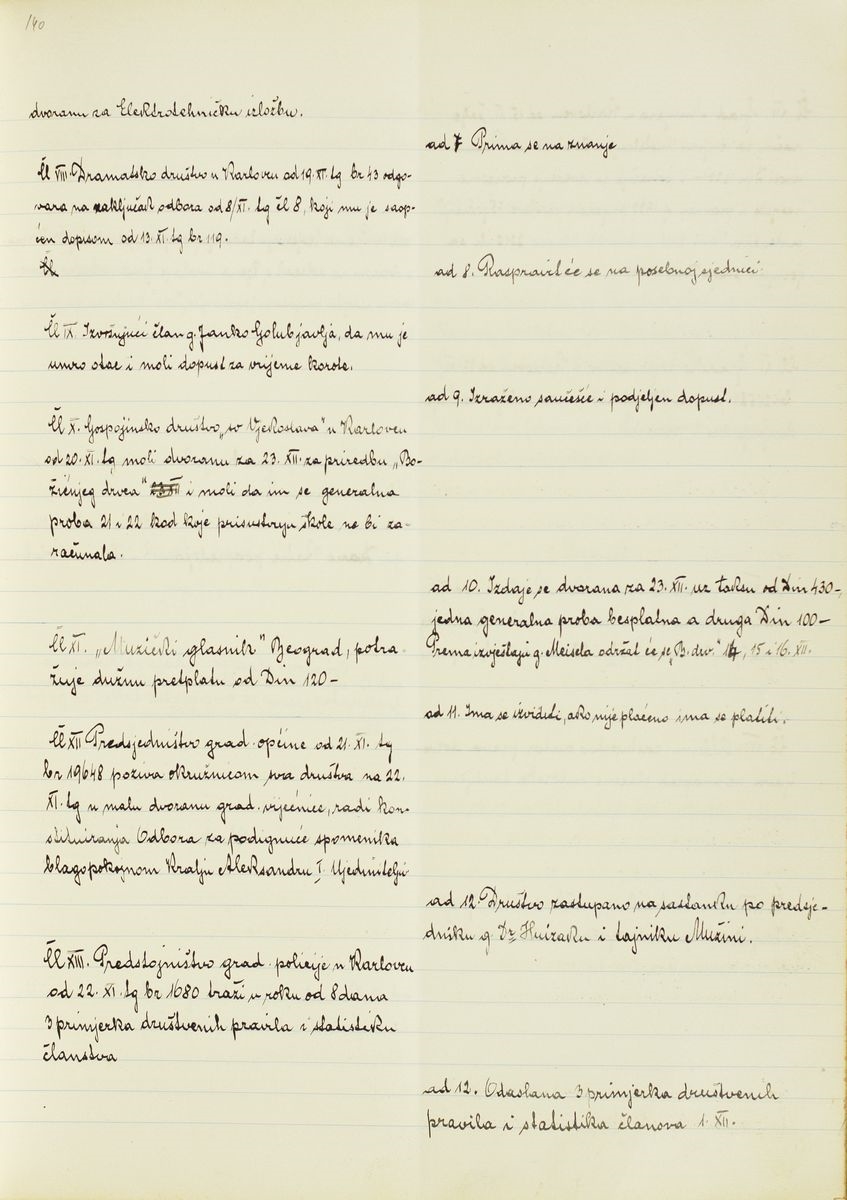 140
dvoranu za Elektrotehničku izložbu.
ad 7 Prima se na znanje
Čl VIII. Dramatsko društvo u Karlovcu od 19. XI. tg br 43 odgo-
vara na zaključak odbora od 8/XI. tg čl 8, koji mu je saop-
ćen dopisom od 13. XI tg br 119.
Čl
ad 8. Raspravit će se na posebnoj sjednici.
Čl IX. Izvršujući član g. Janko Golub javlja, da mu je
umro otac i moli dopust za vrijeme korote.
ad 9. Izraženo saučešće i podjeljen dopust.
Čl X. Gospojinsko društvo „sv Vjekoslava" u Karlovcu
od 20. XI. tg moli dvoranu za 23. XII. za priredbu „Bo-
žićnjeg drvca" 23 XII i moli da im se generalna
proba 21 i 22 kod koje prisustvuju škole ne bi za-
računala.
ad 10. Izdaje se dvorana za 23. XII. uz taksu od Din 430-,
jedna generalna proba besplatna a druga Din 100-
Prema izvještaju g. Meisela održat će se „B. drv." 14, 15 i 16. XII.
Čl XI. „Muzički glasnik" Beograd, potra-
žuje dužnu pretplatu od Din 120-
ad 11. Ima se izviditi, ako nije plaćeno ima se platiti.
Čl XII Predsjedništvo grad. općine od 21. XI. tg
br 19648 poziva okružnicom sva društva na 22.
XI. tg u malu dvoranu grad. vijećnice, radi kon-
stituiranja Odbora za podignuće spomenika
blagopokojnom Kralju Aleksandru I. Ujedinitelju
ad 12. Društvo zastupano na sastanku po predsje-
dniku g. Dr. i tajniku Mužini.
Čl XIII. Predstojništvo grad. policije u Karlovcu
od 22. XI. tg br 1680 traži u roku od 8 dana
3 primjerka društvenih pravila i statistiku
članstva
ad 12. Odaslana 3 primjerka društvenih
pravila i statistika članova 1. XII.